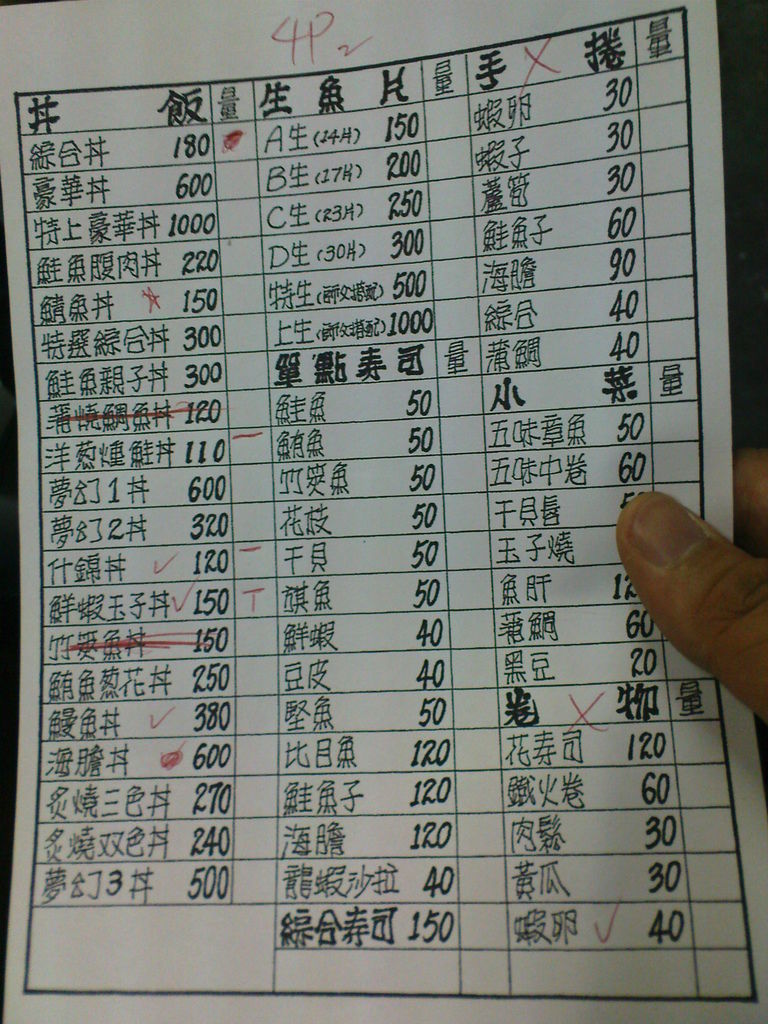 4P2
丼 飯 量
綜合丼 180
豪華丼 600
特上豪華丼 1000
鮭魚腹肉丼 220
鯖魚丼 150
特選綜合丼 300
鮭魚親子丼 300
蒲燒鯛魚丼 120
洋葱燻鮭丼 110
夢幻1丼 600
夢幻2丼 320
什錦丼 120
鮮蝦玉子丼 150
竹筴魚丼 150
鮪魚葱花丼 250
鰻魚丼 380
海膽丼 600
炙燒三色丼 270
炙燒双色丼 240
夢幻3丼 500
生 魚 片 量
A生(14片) 150
B生(17片) 200
C生(23片) 250
D生(30片) 300
特生(師父搭配) 500
上生(師父搭配) 1000
單點寿司 量
鮭魚 50
鮪魚 50
竹筴魚 50
花枝 50
干貝 50
旗魚 50
鮮蝦 40
豆皮 40
堅魚 50
比目魚 120
鮭魚子 120
海膽 120
龍蝦沙拉 40
綜合寿司 150
手 捲 量
蝦卵 30
蝦子 30
蘆筍 30
鮭魚子 60
海膽 90
綜合 40
蒲鯛 40
小 菜 量
五味章魚 50
五味中卷 60
干貝唇
玉子燒
魚肝
蒲鯛 60
黑豆 20
卷 物 量
花寿司 120
鐵火卷 60
肉鬆 30
黃瓜 30
蝦卵 40